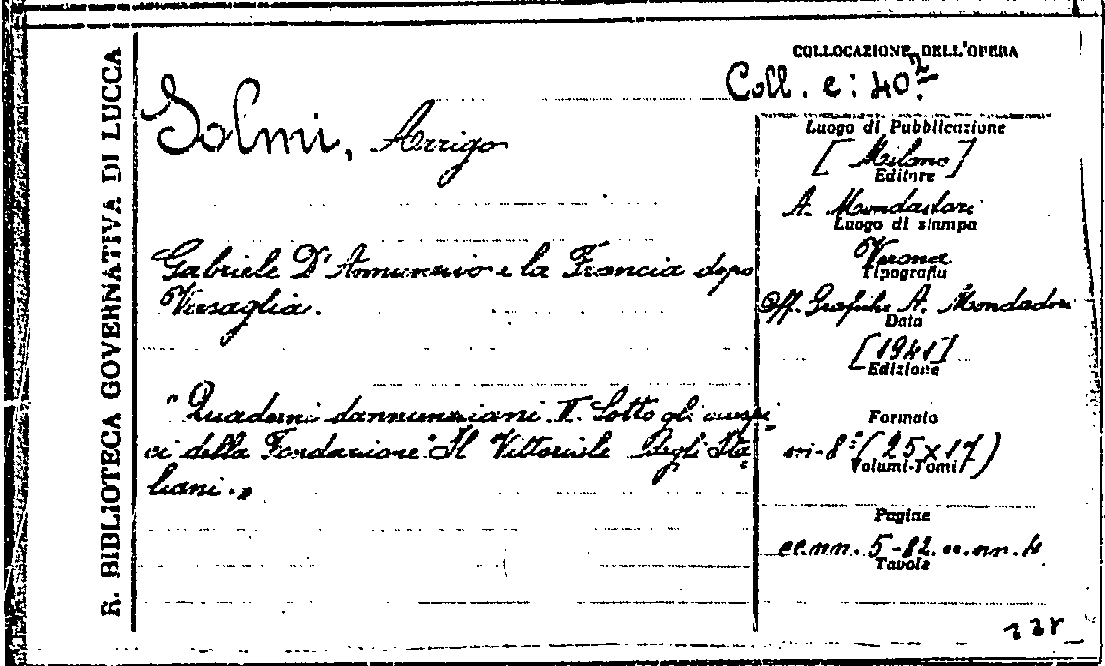 R. BIBLIOTECA GOVERNATIVA DI LUCCA
Solmi, Arrigo
Gabriele D'Annunzio e la Francia dopo
Versaglia.
"Quaderni dannunziani. II. Sotto gli auspi=
ci della Fondazione "Il Vittoriale Degli Ita=
liani.„
COLLOCAZIONE DELL'OPERA
Coll. c: 40.2
Luogo di Pubblicazione
[Milano]
Editore
A. Mondadori
Luogo di stampa
Verona
Tipografia
Off. Grafiche A. Mondadori
Data
[1941]
Edizione
Formato
in-8° (25x17)
Volumi-Tomi
Pagine
cc.nn. 5-82. cc.nn. 4
Tavole